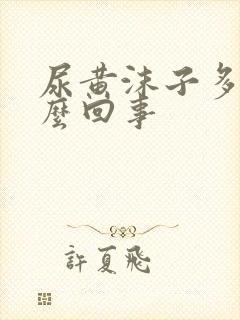 尿黄沫子多
麼回事
許夏飛